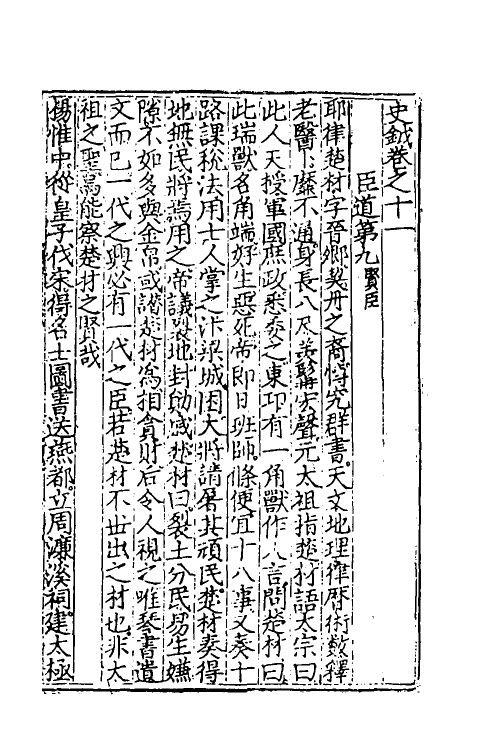 史鉞卷之十一
臣道第九 賢臣
耶律楚材字晉卿契丹之裔博究群書天文地理律曆術數釋
老醫卜靡不通身長八尺美髯宏聲元太祖指楚材語太宗曰
此人天授軍國庶政悉委之東印有一角獸作人言問楚材曰
此瑞獸名角端好生惡死帝即日班師條便宜十八事又奏十
路課稅法用士人掌之汴梁城困大將請屠其頑民楚材奏得
地無民將焉用之帝議裂地封勳戚楚材曰裂土分民易生嫌
隙不如多與金帛或譖楚材為相貪財后令人視之唯琴書遺
文而已一代之興必有一代之臣若楚材不世出之材也非大
祖之聖焉能察楚材之賢哉
楊惟中從皇子伐宋得名士圖書送燕都立周濂溪祠建太極